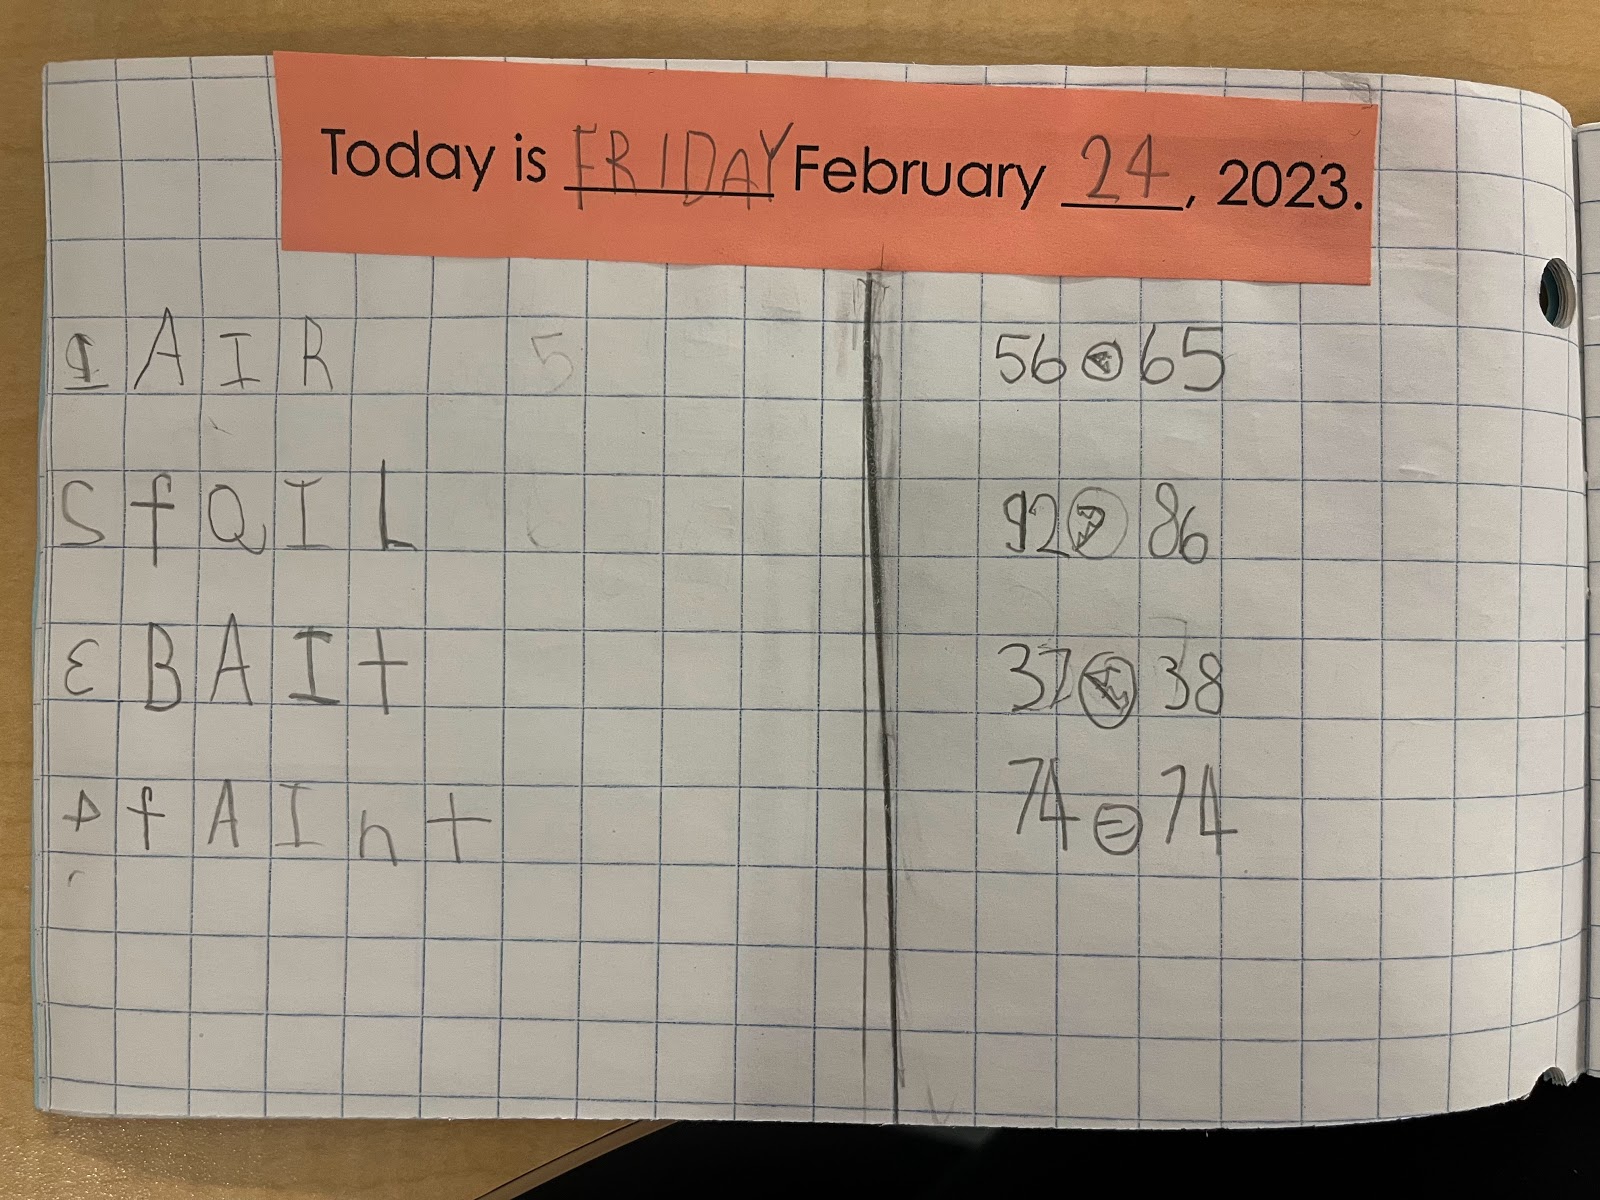 Today is FRIDAY February 24, 2023.
1 AIR
2 fQIL
3 BAIt
4 fAInt
56 < 65
92 > 86
37 < 38
74 = 74